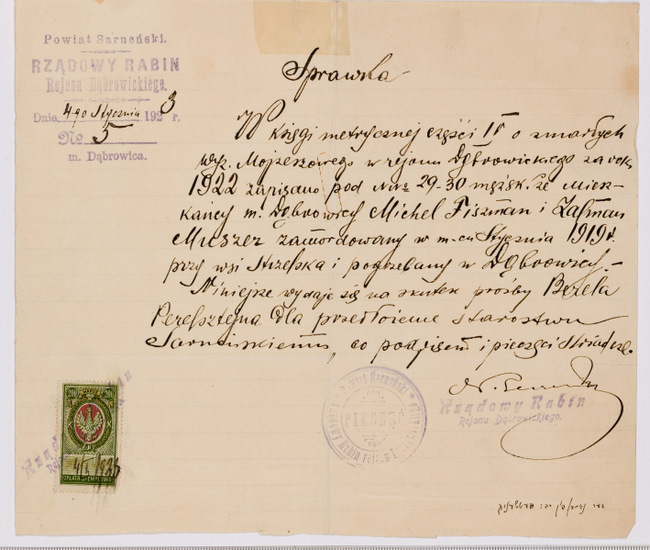 Powiat Sarneński.
RZĄDOWY RABIN
Rejonu Dąbrowickiego.
Dnia 4-go Stycznia 1923 r.
No 5
m. Dąbrowica.
Sprawka
W księgi metrycznej części IV o zmarłych
wyz. Mojżeszowego w rejonu Dąbrowickiego za rok
1922 zapisano pod NNrz 29-30 męzsk. że Miesz-
kańcy m. Dąbrowicy Michel Fiszman i Zalman
Muszer zamordowany w m-cu Stycznia 1919 r.
przy wsi Strzelska i pogrzebany w Dąbrowicy.-
Niniejsze wydaje się na skutek prośby Bezela
Perelsztejna dla przedłożenie Starostwu
Sarneńskiemu, co podpisem i pieczęci stwierdz.
Rządowy Rabin
Rejonu Dąbrowickiego.
Powiat Sarneński
PIECZĘĆ
4/I 1923
OPŁATA STEMPLOWA